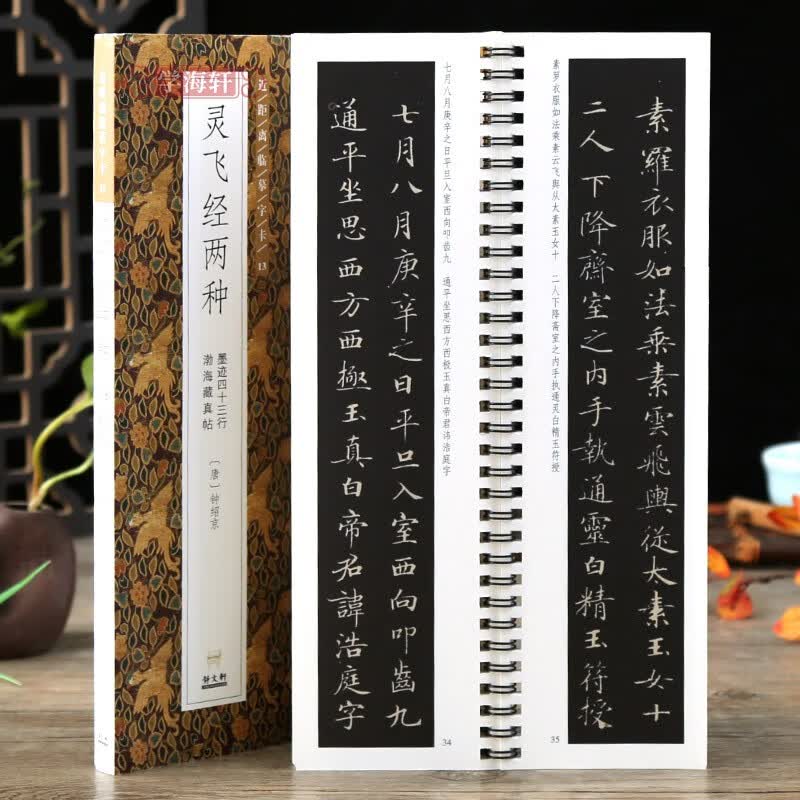 学海轩
近/距/离/临/摹/字/卡/13
灵飞经两种
墨迹四十三行
渤海藏真帖
〔唐〕钟绍京
七月八月庚辛之日平旦入室西向叩齿九 通平坐思西方西极玉真白帝君讳浩庭字
七月八月庚辛之日平旦入室西向叩齒九
通平坐思西方西極玉真白帝君諱浩庭字
34
素羅衣服如法乘素雲飛輿從太素玉女十
二人下降齋室之内手執通靈白精玉符授
素罗衣服如法乘素云飞舆从太素玉女十 二人下降斋室之内手执通灵白精玉符授
35